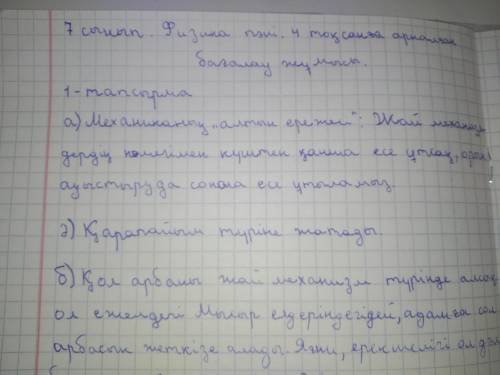 7 сынып. Физика пәні. 4 тоқсанға арналған
бағалау жұмысы.
1-тапсырма
а) Механиканың "алтын ережесі": Жай механизм
дердің көмегімен күштен қанша есе ұтсақ, орын
ауыстыруда сонша есе ұтыламыз.
ә) Қарапайым түріне жатады.
б) Қол арбаны жай механизм түрінде алсақ
ол ежелдегі Мысыр елдеріндегідей, адамға
арбасын жеткізе алады. Яғни, ерекшелігі ол